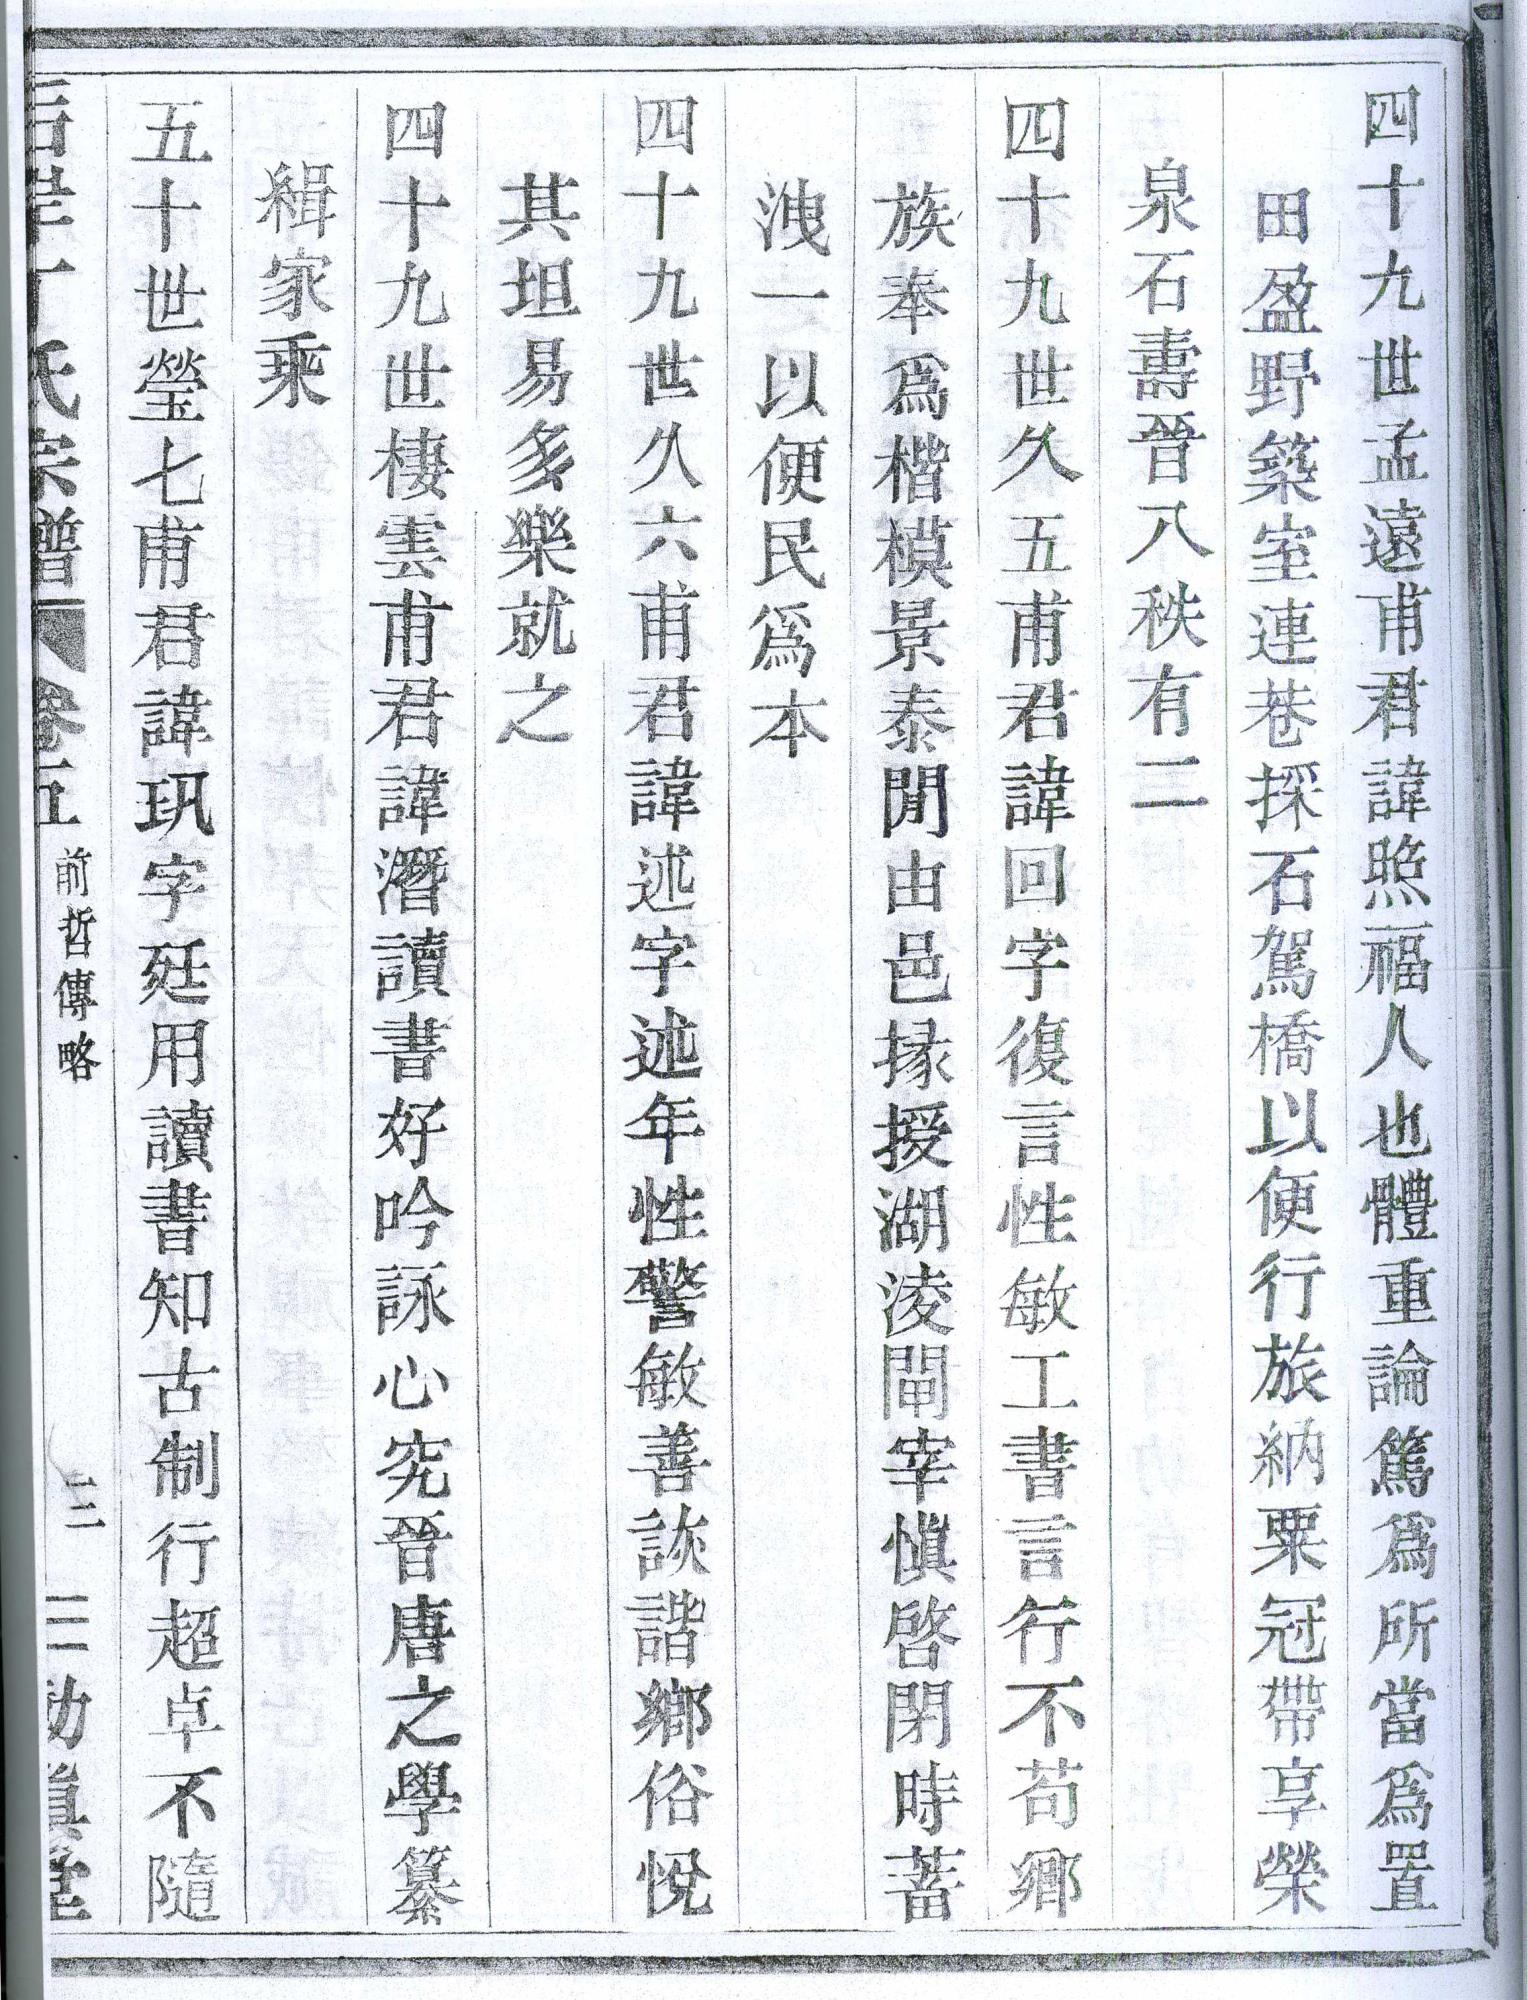 四十九世孟遠甫君諱照福人也體重論篤爲所當爲置
田盈野築室連巷採石駕橋以便行旅納粟冠帶享榮
泉石壽晉八秩有二
四十九世久五甫君諱回字復言性敏工書言行不苟鄉
族奉爲楷模景泰閒由邑掾授湖淩閘宰愼啓閉時蓄
洩一以便民爲本
四十九世久六甫君諱述字述年性警敏善詼諧鄉俗悅
其坦易多樂就之
四十九世棲雲甫君諱潛讀書好吟詠心究晉唐之學纂
緝家乘
五十世瑩七甫君諱玑字廷用讀書知古制行超卓不隨
氏宗譜 卷五 前哲傳略 三 三 堂